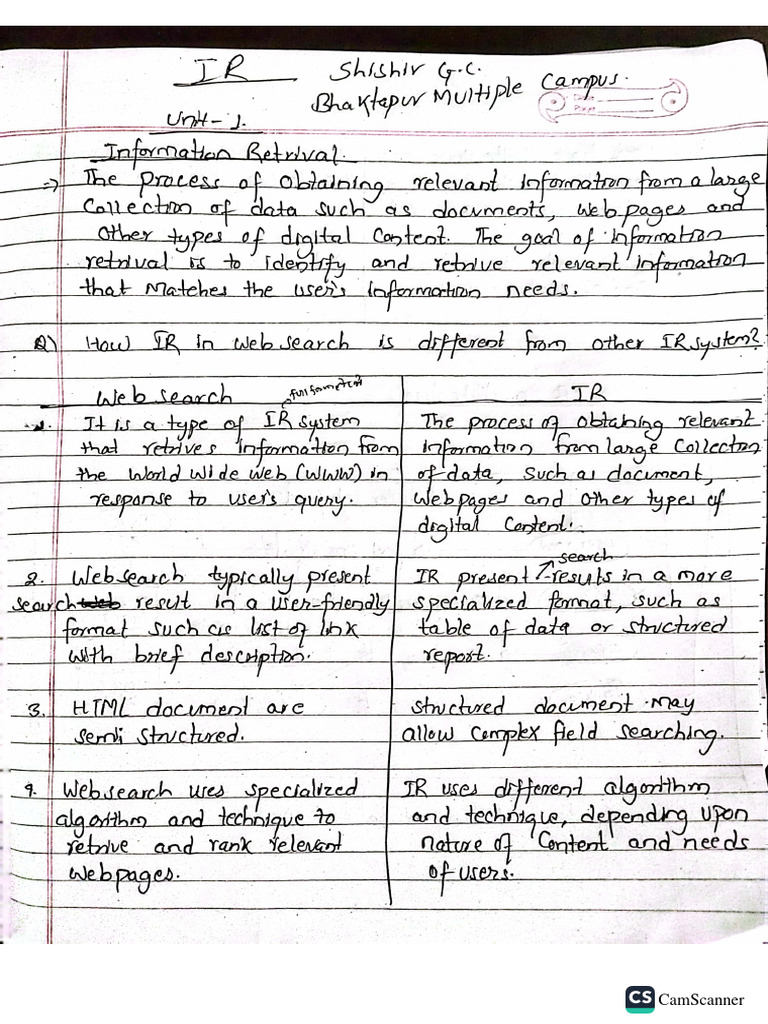 IR Shishir G.C.
Bhaktapur Multiple Campus.
Unit- 1.
Information Retrival.
=> The process of obtaining relevant information from a large
collection of data such as documents, webpages and
other types of digital content. The goal of information
retrival is to identify and retrive relevant information
that matches the user's information needs.
Q) How IR in websearch is different from other IR system?
Web search
IR
1. It is a type of IR system
that retrives information from
the World Wide Web (WWW) in
response to user's query.
The process of obtaining relevant
information from large collection
of data, such as document,
webpages and other types of
digital content.
2. Websearch typically present
search result in a user-friendly
format such as list of link
with brief description.
IR present search results in a more
specialized format, such as
table of data or structured
report.
3. HTML document are
semi structured.
structured document may
allow complex field searching.
4. Websearch uses specialized
algorithm and technique to
retrive and rank relevant
webpages.
IR uses different algorithm
and technique, depending upon
nature of content and needs
of users.
CS CamScanner